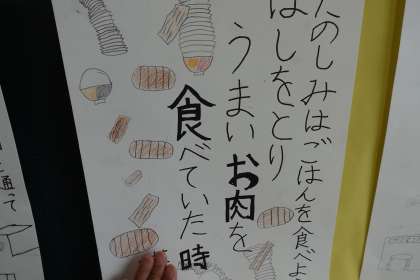 たのしみはごはんを食べよ
はしをとり
うまいお肉を
食べていた時
通って